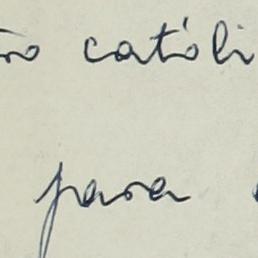 católi
para